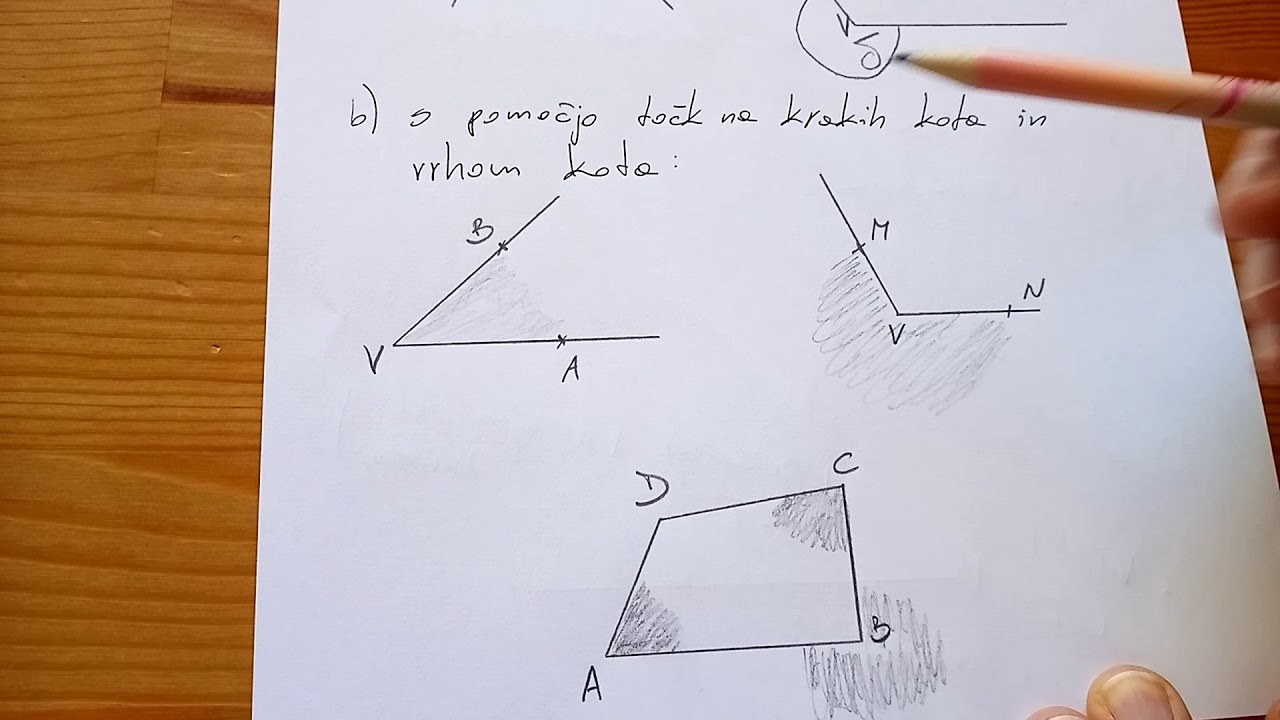 V
δ
b) s pomočjo točk na krakih kota in
vrhom kota:
B
M
N
V
V
A
C
D
B
A